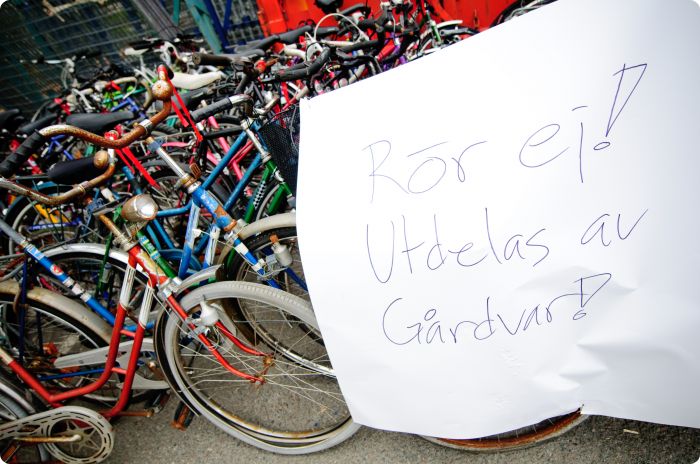 Rör ej!
Utdelas av
Gårdvar!